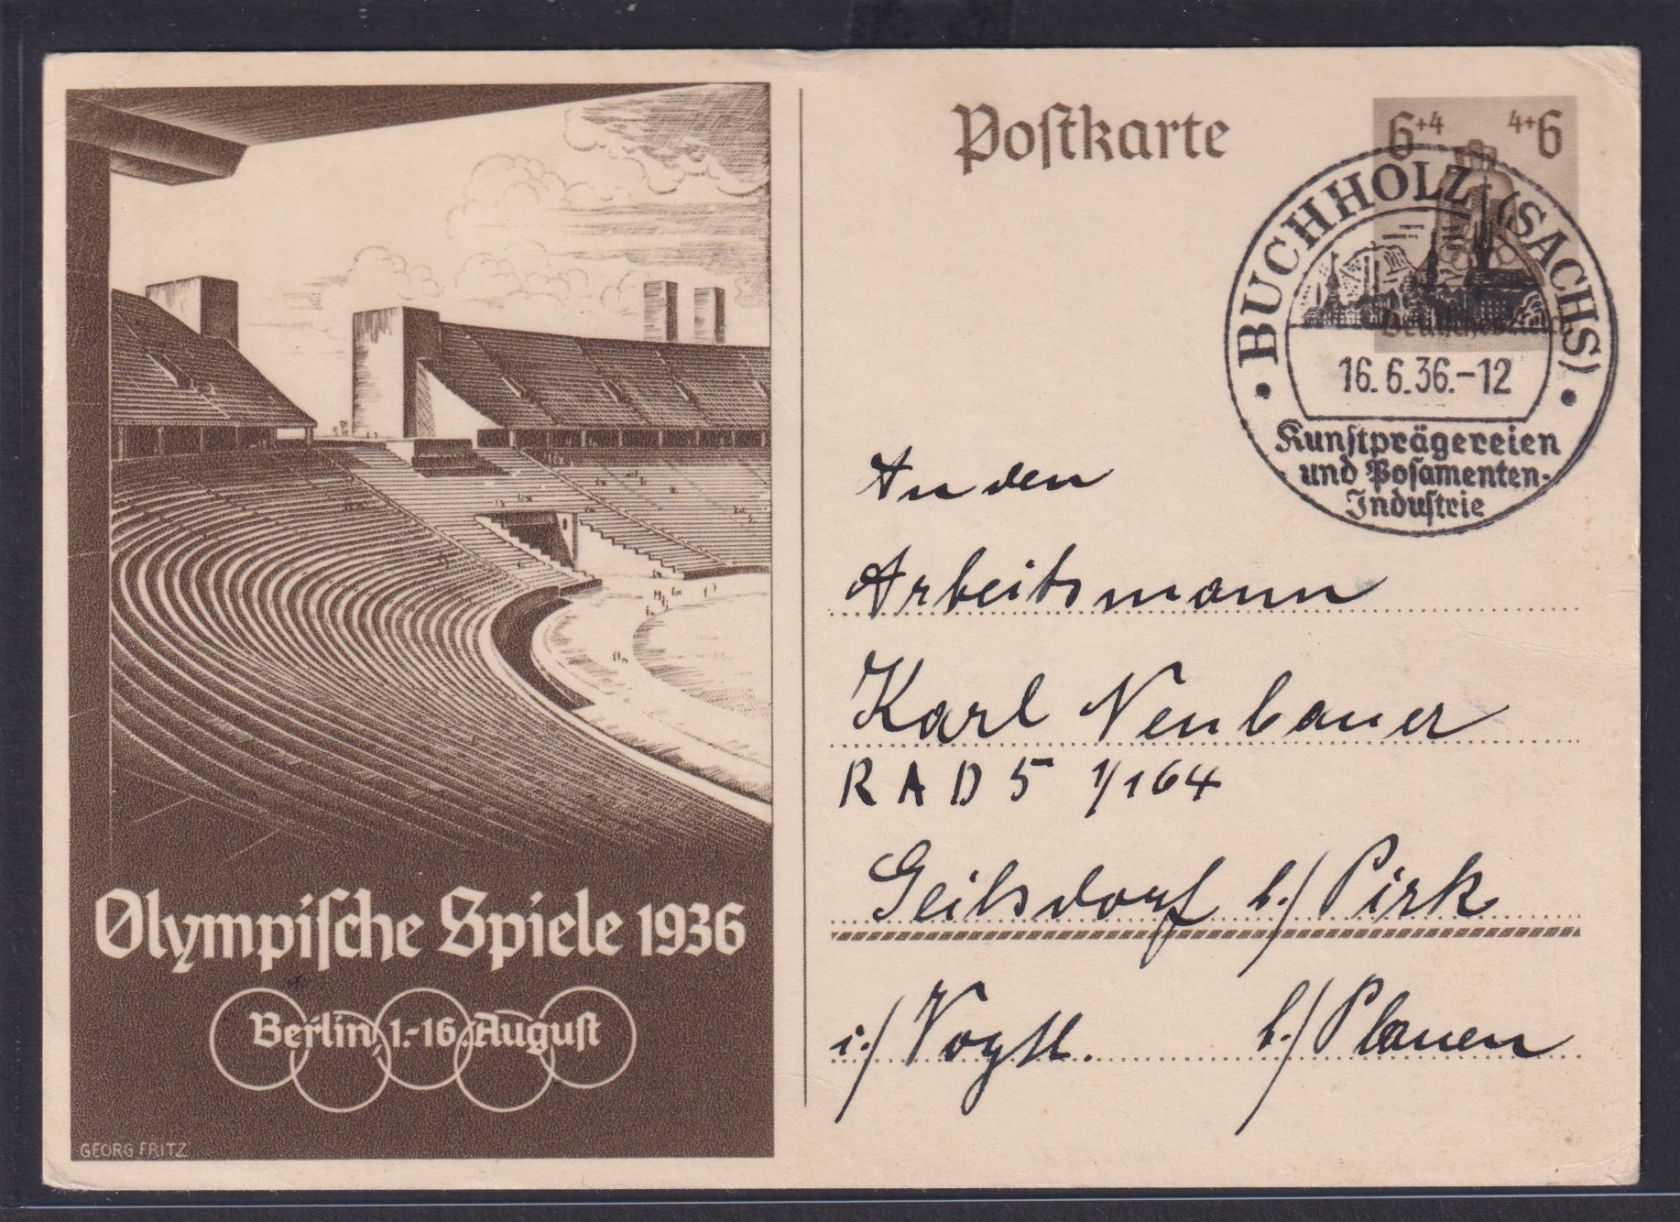 Postkarte
6+4 4+6
BUCHHOLZ (SACHS)
Deutsches
16.6.36.-12
Kunstprägereien
und Posamenten-
Industrie
An den
Arbeitsmann
Karl Neubauer
RAD 5 1/164
Geilsdorf b./ Pirk
i./ Vogtl. b./ Plauen
Olympische Spiele 1936
Berlin, 1.-16. August
GEORG FRITZ